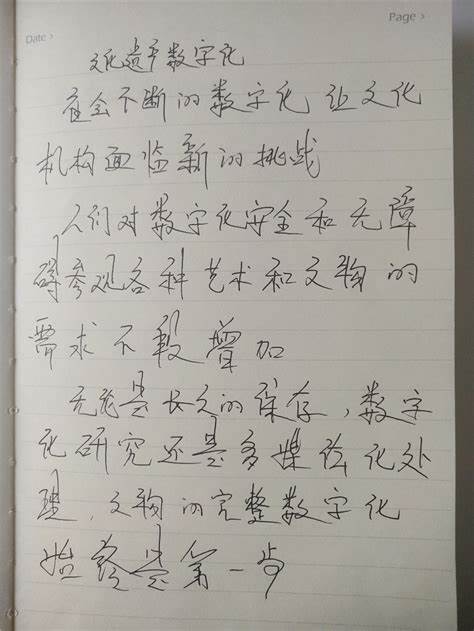 Date >
Page >
文化遗产数字化
社会不断的数字化 让文化
机构面临新的挑战
人们对数字化安全和无障
碍参观各种艺术和文物的
需求不段增加
无论是长久的保存，数字
化研究还是多媒体化处
理，文物的完整数字化
始终是第一步